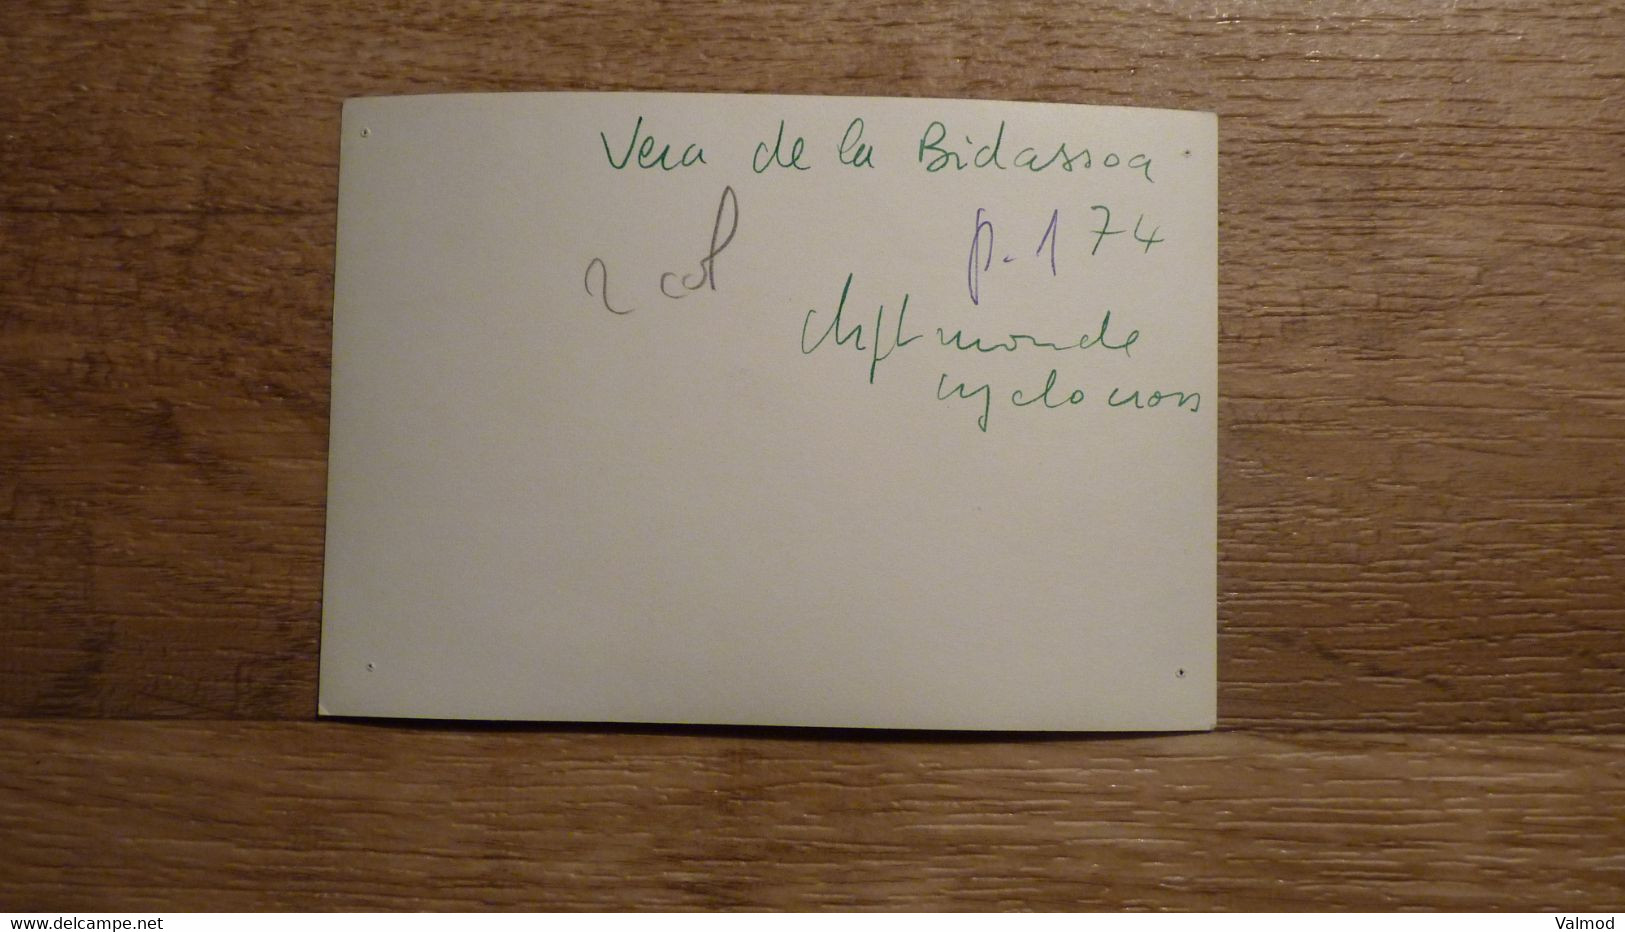 Vera de la Bidassoa
74
p. 1
2 col
chpt monde
cyclo cross
delcampe.net
Valmod